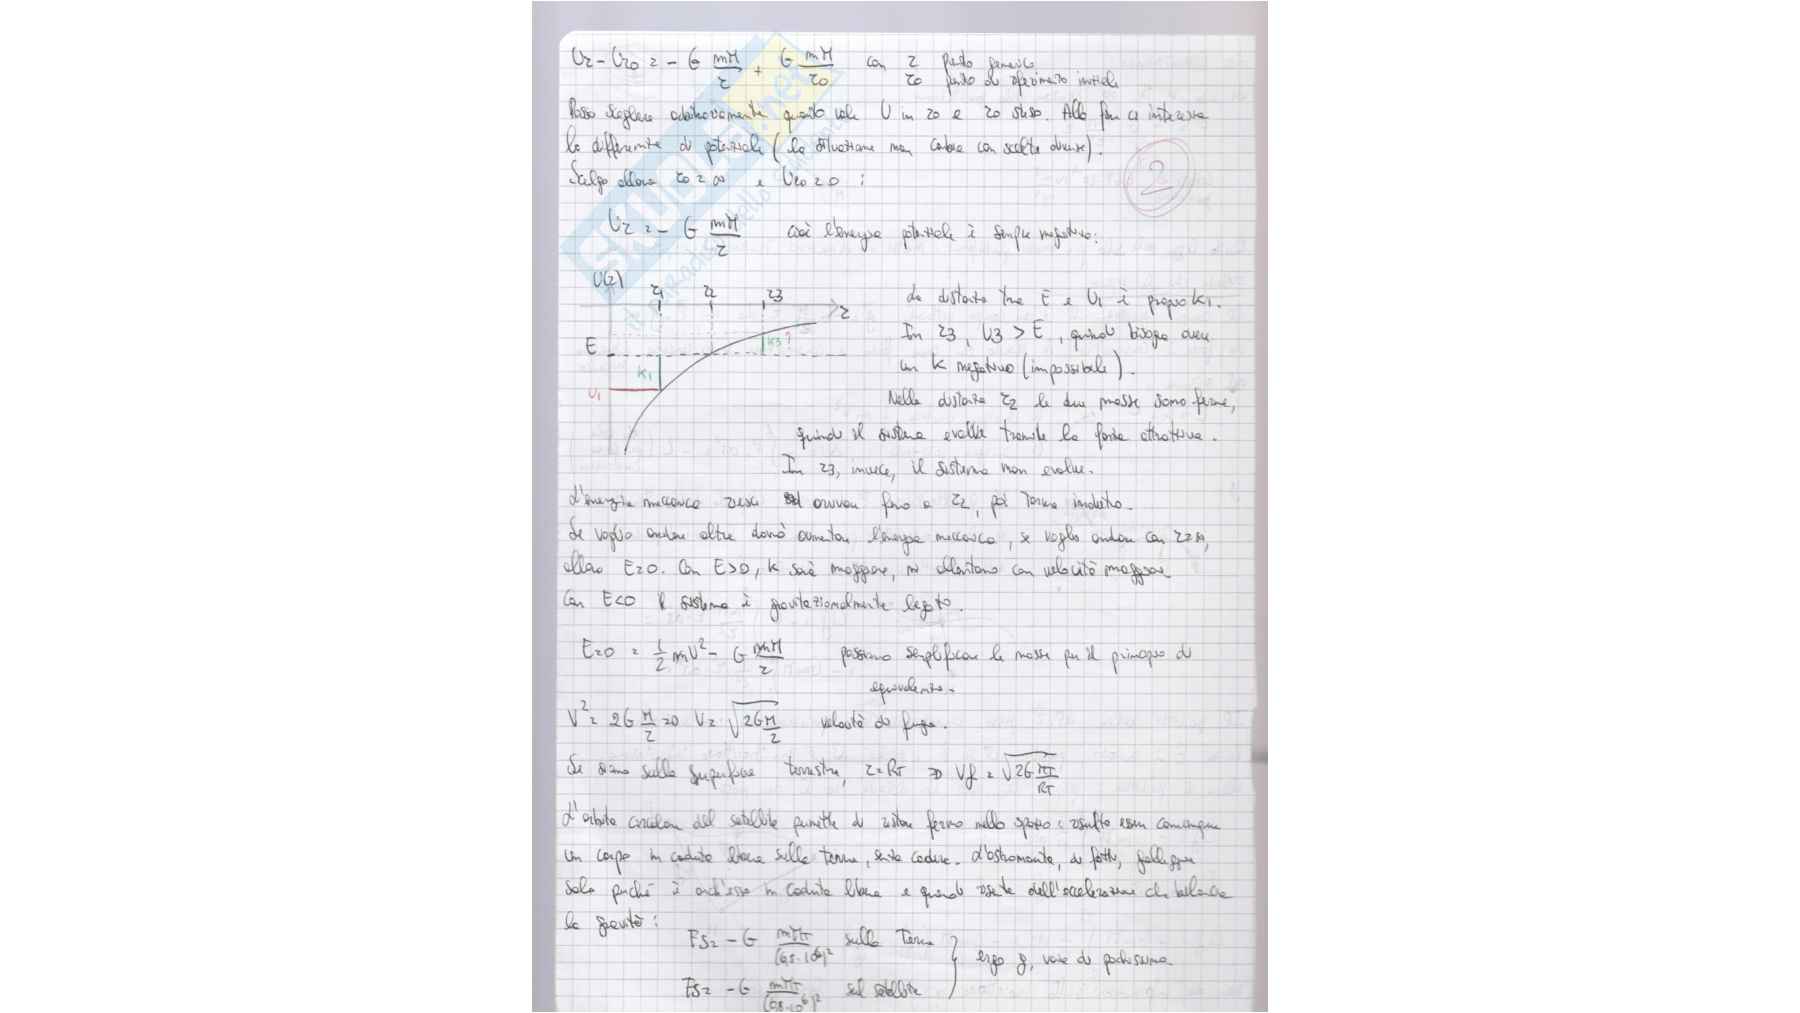 Ur - Ur0 = - G mM/r + G mM/r0 con r punto generico
r0 punto di riferimento iniziale
Posso scegliere arbitrariamente quanto vale U in r0 e r0 stesso. Alla fine ci interessa
la differenza di potenziale (la situazione non cambia con scelte diverse).
2
Scelgo allora r0 = ∞ e Ur0 = 0 :
Ur = - G mM/r cioè l'energia potenziale è sempre negativa:
U(r)
r1 r2 r3
r
E
K1
K3?
U1
La distanza tra E e U1 è proprio K1.
In r3, U3 > E, quindi bisogna avere
un K negativo (impossibile).
Nella distanza r2 le due masse sono ferme,
quindi il sistema evolve tramite la forza attrattiva.
In r3, invece, il sistema non evolve.
L'energia meccanica riesce arrivare fino a r2, poi torna indietro.
Se voglio andare oltre dovrò aumentare l'energia meccanica, se voglio andare con r=∞,
allora E=0. Con E>0, K sarà maggiore, mi allontano con velocità maggiore
Con E<0 il sistema è gravitazionalmente legato.
E=0 = 1/2 mV² - G mM/r possiamo semplificare le masse per il principio di
equivalenza.
V² = 2G M/r => V = √(2G M/r) velocità di fuga.
Se siamo sulla superficie terrestre, r=RT => Vf = √(2G MT/RT)
L'orbita circolare del satellite permette di restare fermo nello spazio e risulta essere comunque
un corpo in caduta libera sulla terra, senza cadere. L'astronauta, di fatto, galleggia
solo perché è anch'esso in caduta libera e quindi risente dell'accelerazione che bilancia
la gravità:
Fs = - G mMT/(6,5·10⁶)² sulla Terra
ergo g, varia di pochissimo
Fs = - G mMT/(6,8·10⁶)² sul satellite
SKUOLA.net